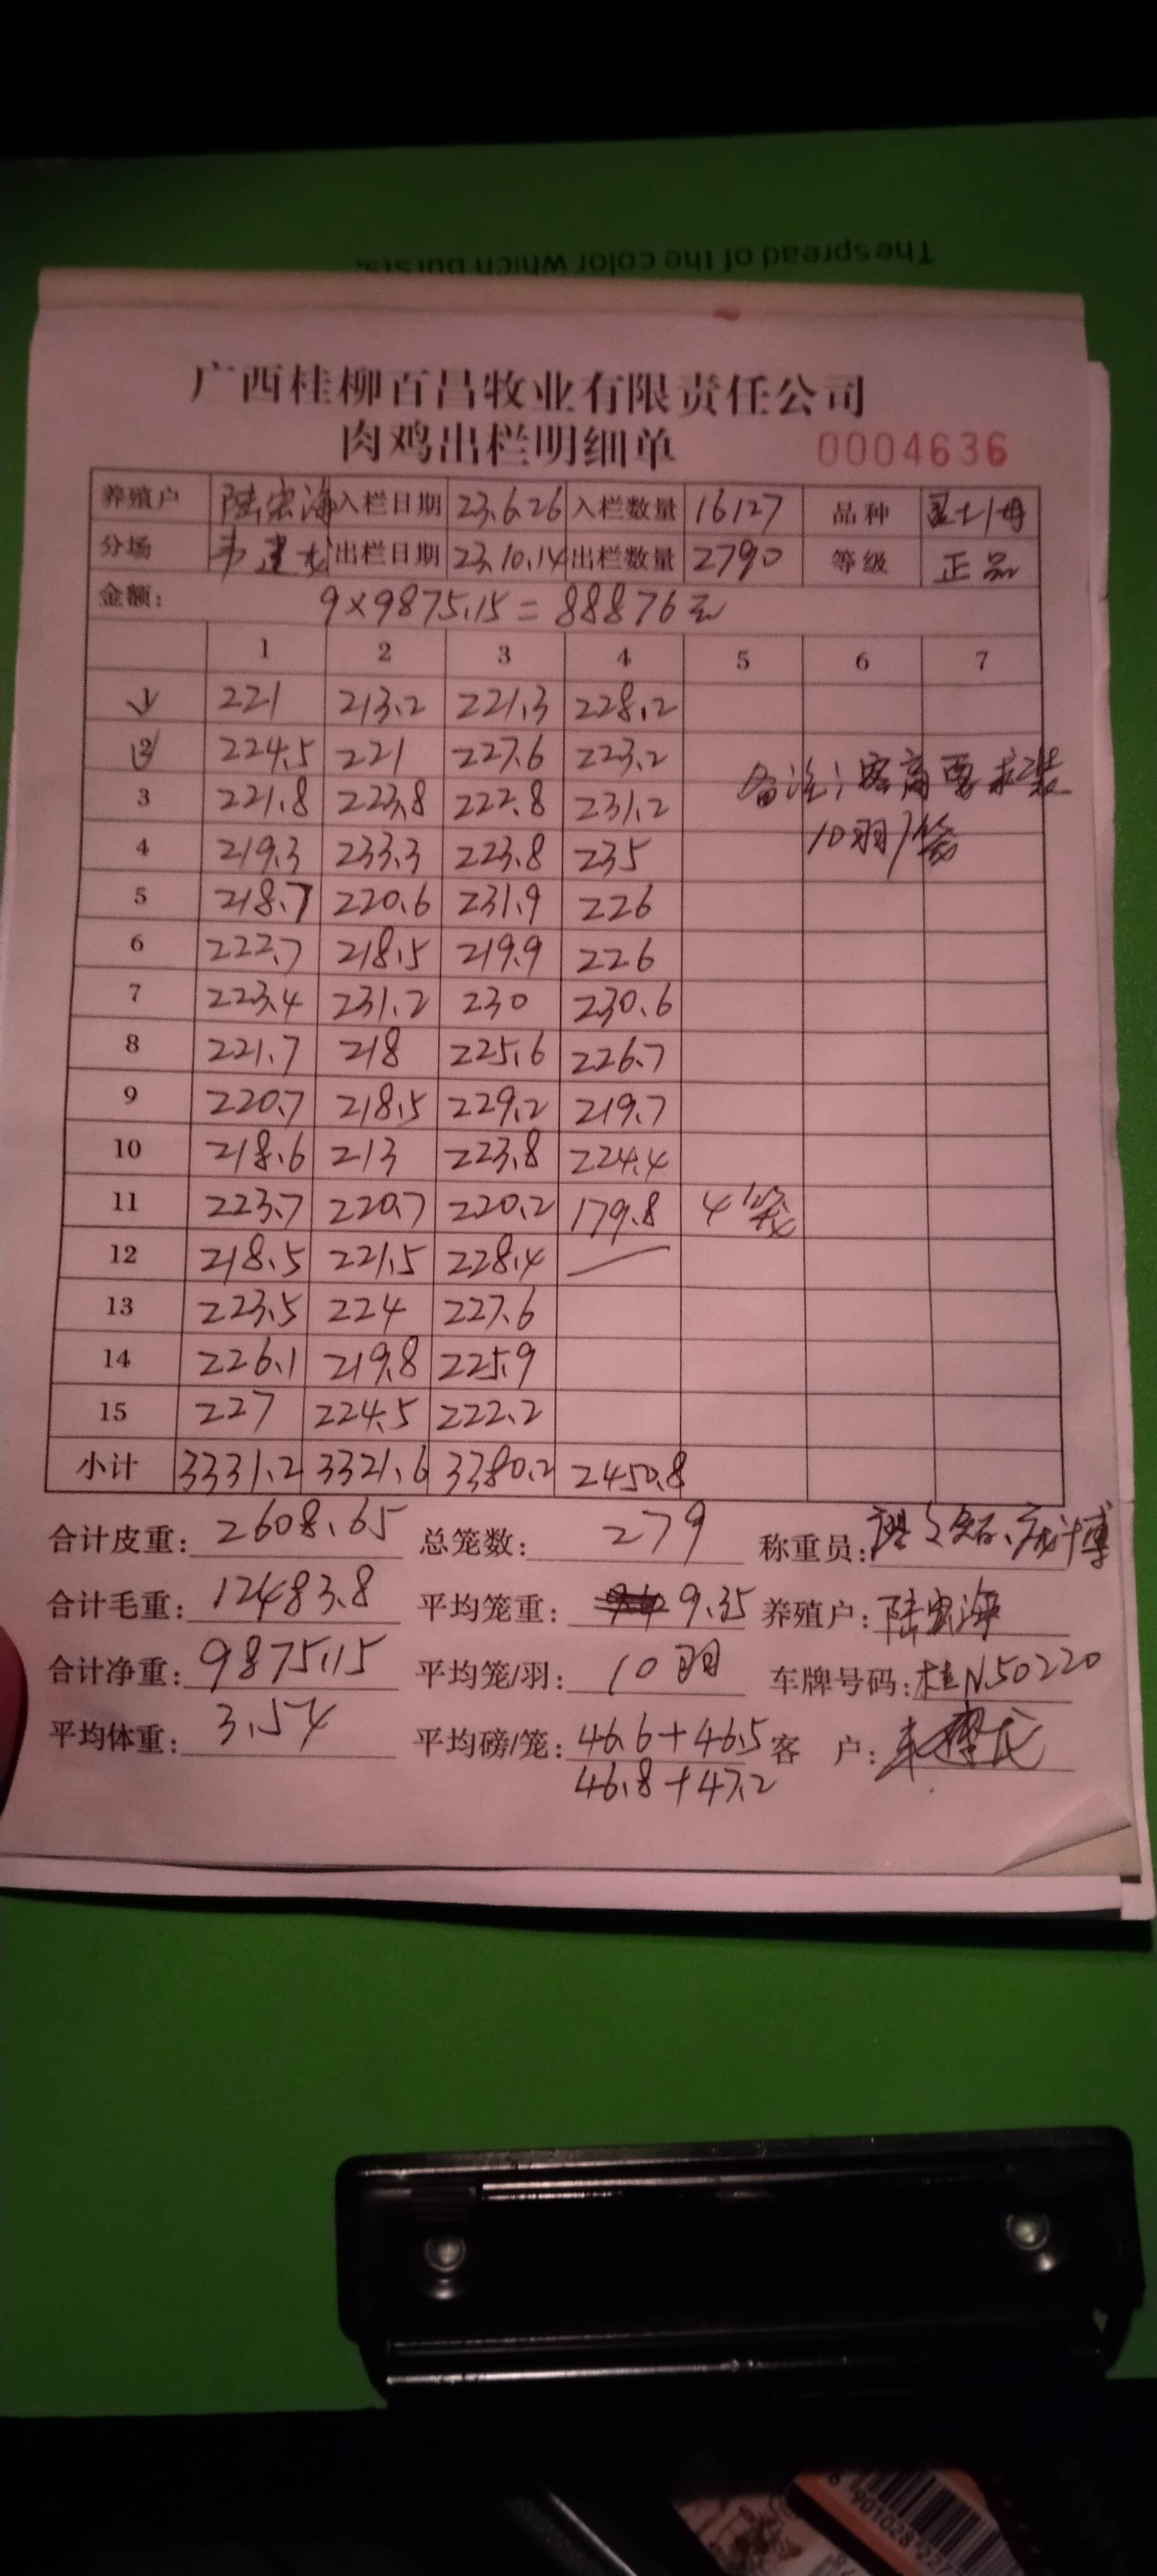 The spread of the color which bursts.
广西桂柳百昌牧业有限责任公司
肉鸡出栏明细单 0004636
养殖户 陆宏海 入栏日期 23.6.26 入栏数量 16127 品种 土1母
分场 韦建 出栏日期 23.10.14 出栏数量 2790 等级 正品
金额: 9×9875.15=88876元
1 2 3 4 5 6 7
1 221 213.2 221.3 228.2
2 224.5 221 227.6 223.2
3 221.8 223.8 222.8 231.2 备注:客商要求装
4 219.3 233.3 223.8 235 10羽/笼
5 218.7 220.6 231.9 226
6 222.7 218.5 219.9 226
7 223.4 231.2 230 230.6
8 221.7 218 225.6 226.7
9 220.7 218.5 229.2 219.7
10 218.6 213 223.8 224.4
11 223.7 220.7 220.2 179.8 4笼
12 218.5 221.5 228.4
13 223.5 224 227.6
14 226.1 219.8 225.9
15 227 224.5 222.2
小计 3331.2 3321.6 3380.2 2450.8
合计皮重: 2608.65 总笼数: 279 称重员:
合计毛重: 12483.8 平均笼重: 9.35 养殖户: 陆宏海
合计净重: 9875.15 平均笼/羽: 10羽 车牌号码: 桂N.50220
平均体重: 3.54 平均磅/笼: 46.6+46.5 客 户:
46.8+47.2